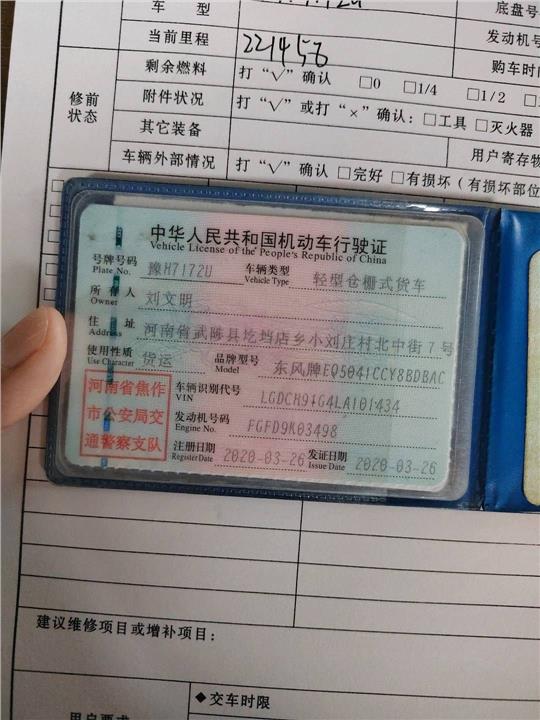 车 型
底盘号
当前里程
221456
发动机号
剩余燃料 打“√”确认 □0 □1/4 □1/2
购车时间
修前状态
附件状况 打“√”或打“×”确认：□工具 □灭火器
其它装备
用户寄存物
车辆外部情况 打“√”确认 □完好 □有损坏（有损坏部位
中华人民共和国机动车行驶证
Vehicle License of the People's Republic of China
号牌号码 豫H7172U 车辆类型 轻型仓栅式货车
Plate No. Vehicle Type
所有人 刘文明
Owner
住 址 河南省武陟县圪垱店乡小刘庄村北中街7号
Address
使用性质 货运 品牌型号 东风牌EQ5041CCY8BDBAC
Use Character Model
河南省焦作
市公安局交
通警察支队
车辆识别代号 LGDCH91G4LA101434
VIN
发动机号码 FGFD9K03498
Engine No.
注册日期 2020-03-26 发证日期 2020-03-26
Register Date Issue Date
建议维修项目或增补项目：
◆交车时限
用户要求